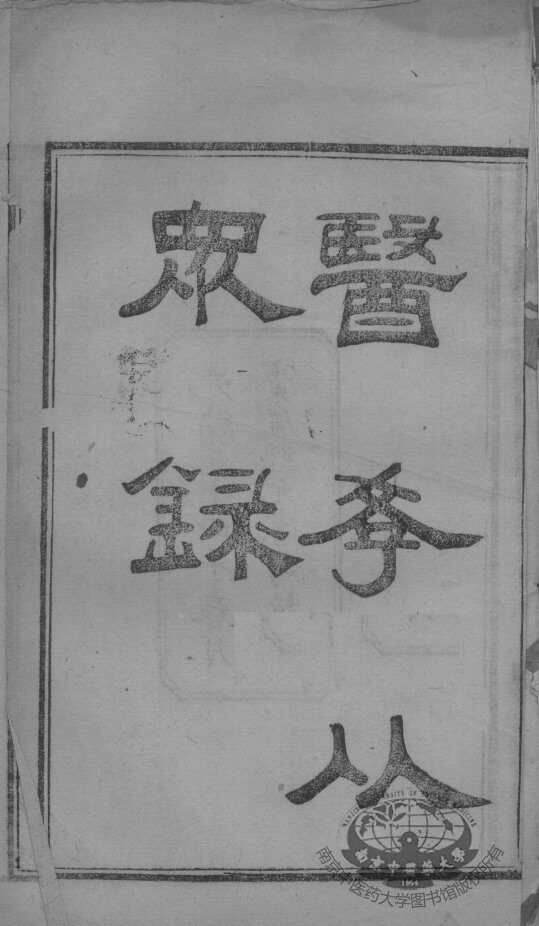 醫學从
眾錄
南京中医药大学
1954
南京中医药大学图书馆版权所有